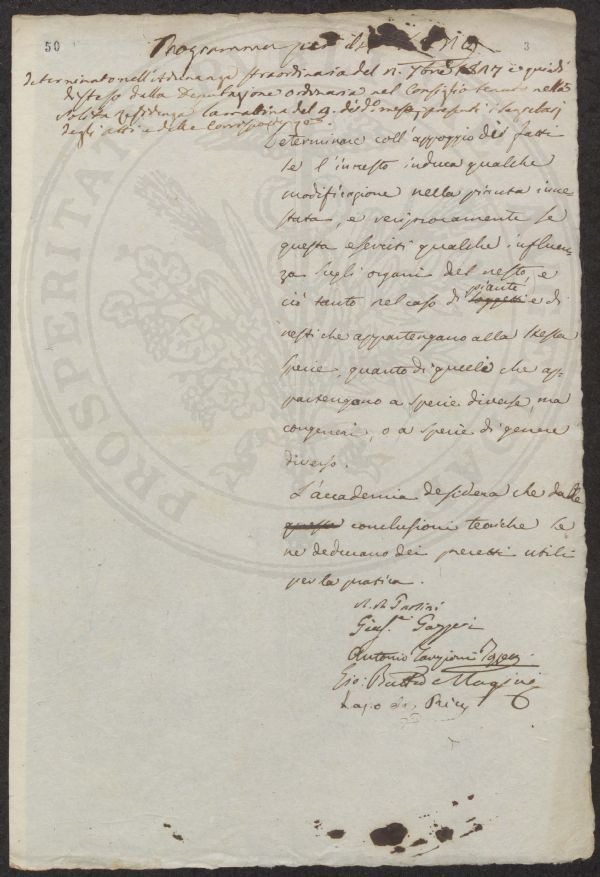 50
3
Programma per il
determinato nell'Adunanza straordinaria del 1817 e quindi
disteso dalla Deputazione ordinaria nel Consiglio tenuto nella
solita residenza la mattina del 4. di do. mese, presenti i Segretarj
degli atti e delle Corrispondenze.
Determinare coll'appoggio di fatti
se l'innesto induca qualche
modificazione nella pianta inne-
stata, e vengono se
questa eserciti qualche influen-
za sugli organi del nesto, e
piante
ciò tanto nel caso di soggetti e di
nesti che appartengano alla stessa
specie, quanto di quelli che ap-
partengano a specie diverse, ma
congeneri, o a specie di genere
diverso.
L'accademia desidera che dalle
queste conclusioni teoriche se
ne deducano dei precetti utili
per la pratica.
Gius.e Gazzeri
Antonio Targioni Tozzetti
Gio: Batta
Lapo de Ricci
PROSPERITA